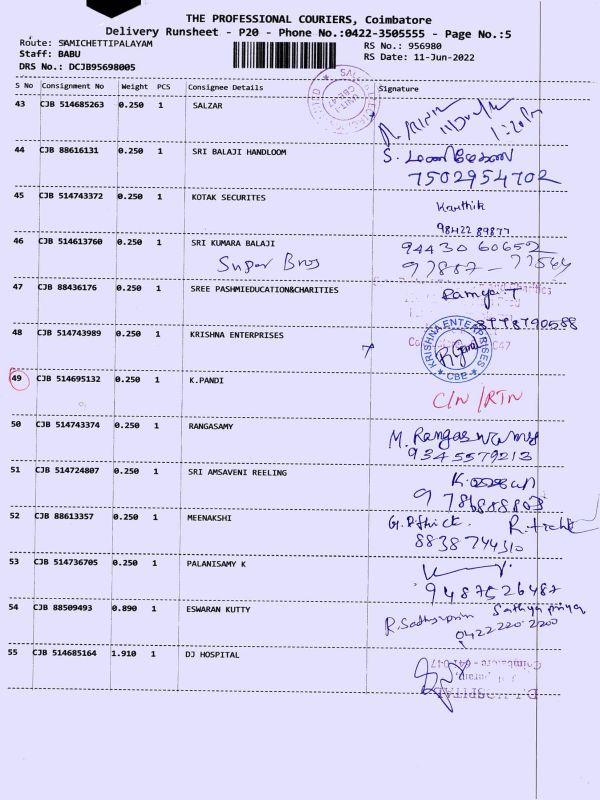 THE PROFESSIONAL COURIERS, Coimbatore
Delivery Runsheet - P20 - Phone No.:0422-3505555 - Page No.:5
Route: SAMICHETTIPALAYAM RS No.: 956980
Staff: BABU RS Date: 11-Jun-2022
DRS No.: DCJB95698005
S No Consignment No Weight PCS Consignee Details Signature
43 CJB 514685263 0.250 1 SALZAR
44 CJB 88616131 0.250 1 SRI BALAJI HANDLOOM S.
7502954702
45 CJB 514743372 0.250 1 KOTAK SECURITES Karthik
98422 89877
46 CJB 514613760 0.250 1 SRI KUMARA BALAJI 94430 60652
Super Bros
47 CJB 88436176 0.250 1 SREE PASHMIEDUCATION&CHARITIES Ramya.T
48 CJB 514743989 0.250 1 KRISHNA ENTERPRISES KRISHNA ENTERPRISES
* CBE *
49 CJB 514695132 0.250 1 K.PANDI C/N /RTN
50 CJB 514743374 0.250 1 RANGASAMY M. Rangaswamy
9345579213
51 CJB 514724807 0.250 1 SRI AMSAVENI REELING
52 CJB 88613357 0.250 1 MEENAKSHI
8838744310
53 CJB 514736705 0.250 1 PALANISAMY K
9487526487
54 CJB 88509493 0.890 1 ESWARAN KUTTY Sathya priya
0422 220 2200
55 CJB 514685164 1.910 1 DJ HOSPITAL
Coimbatore - 641 047
DJ HOSPITAL